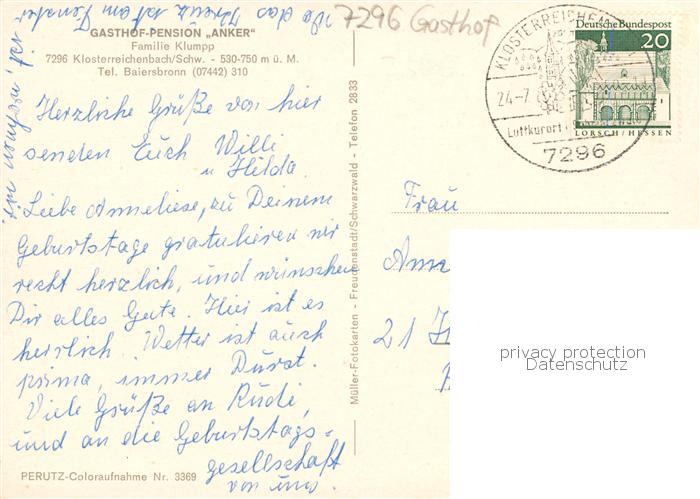 7296 Gasthof
GASTHOF-PENSION „ANKER"
Familie Klumpp
7296 Klosterreichenbach/Schw. - 530-750 m ü. M.
Tel. Baiersbronn (07442) 310
Wo das Kreuz ist am Fenster
ist, wohnen wir.
Herzliche Grüße von hier
senden Euch Willi
u Hilda.
Liebe Anneliese, zu Deinem
Geburtstage gratulieren wir
recht herzlich, und wünschen
Dir alles Gute. Hier ist es
herrlich. Wetter ist auch
prima, immer Durst.
Viele Grüße an Rudi,
und an die Geburtstags-
gesellschaft
von uns.
PERUTZ-Coloraufnahme Nr. 3369
Müller-Fotokarten - Freudenstadt/Schwarzwald - Telefon 2833
KLOSTERREICHEN
24-7
Luftkurort
7296
Deutsche Bundespost
20
LORSCH/HESSEN
Frau
Ann
21
privacy protection
Datenschutz